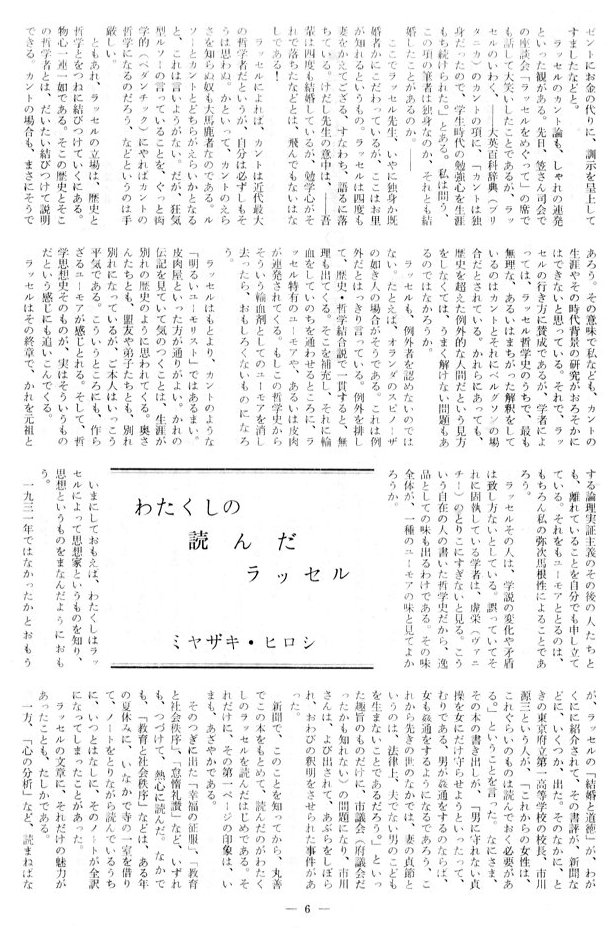 ゼントにお金の代りに、訓示を呈上して
すましたなどと。
ラッセルのカント論も、しゃれの連発
といった観がある。先日、笠さん司会で
の座談会「ラッセルをめぐって」の席で
も話して大笑いしたことであるが、ラッ
セルのいわく、――大英百年辞典(ブリ
タニカ)のカントの項に、「カントは独
身だったので、学生時代の勉強心を生涯
もち続けられた。」とある。私は問う、
この項の筆者は独身なのか、それとも結
婚したことがあるのか。
ここでラッセル先生、いやに独身か既
婚者かにこだわっているが、ここはお里
が知れるというもの。ラッセルは四度も
妻をかえてござる、すなわち、語るに落
ちている。けだし先生の意中は、――吾
輩は四度も結婚しているが、勉学心がそ
れで落ちたなどとは、飛んでもないはな
しである!
ラッセルによれば、カントは近代最大
の哲学者だというが、自分は必ずしもそ
うは思わぬ。かといって、カントのえら
さを知らぬ奴も大馬鹿者なのである。ル
ソーとカントとどちらがえらかとなる
と、これは言いようがない。だが、狂気
型ルソーの言っていることを、ぐっと衒
学的(ペダンチック)にやればカントの
哲学になるのだろう、などというのは手
厳しい。
ともあれ、ラッセルの立場は、歴史と
哲学とをつねに結びつけていくにある。
物心一連一如である。そこの歴史とそこ
の哲学者とは、だいたい結びつけて説明
できる。カントの場合も、まさにそうで
あろう。その意味で私なども、カントの
生涯やその時代背景の研究がおろそかに
はできないと思っている。それで、ラッ
セルの行き方に賛成であるが、学者によ
っては、ラッセル哲学史のうちで、最も
無理な、あるいはまちがった解釈をして
いるのはカントとそれにベルグソンの場
合だとされている。かれらにあっても、
歴史を超えた例外的な人間だという見方
をしなくては、うまく解けない問題もあ
るのではなかろうか。
ラッセルも、例外者を認めないのでは
ない。たとえば、オランダのスピノーザ
の如きの場合がそうである。これは例
外だとはっきり言っている。例外を排し
て、歴史・哲学結合説で一貫すると、無
理も出てくる。そこを補充し、それに輸
血をしていのちを通わせるところに、ラ
ッセル特有のユーモアや、あるいは皮肉
が連発されてくる。もしこの哲学史から
そういう輸血剤としてのユーモアを消し
去ったら、おもしろくないものになろ
う。
ラッセルはもとより、カントのような
「明るいユーモリスト」ではあるまい。
皮肉屋といった方が通りがよい。かれの
伝記を見ていて気のつくことは、生涯が
別れの歴史のように思われてくる。奥さ
んたちとも、盟友や弟子たちとも、別れ
別れになっているが、ご本人はいっこう
平気である。こういうところにも、作ら
ざるユーモアが感じとれる。そして、哲
学思想史そのものが、実はそういうもの
だという感じにも追いこんでくる。
ラッセルはその終章で、かれを元祖と
する論理実証主義のその後の人たちと
も、離れていることを自分でも申し立て
ている。それをもユーモアととるのは、
もちろん私の弥次馬根性によることであ
る。
ラッセルその人は、学説の変化や矛盾
は致し方ないとしている。誤っていてそ
れに固執している学者は、虚栄(ヴァニ
チー)のとりこにすぎないと見る。こう
いう自在の人の書いた哲学史だから、逸
品としての味も出るわけである。その味
全体が、一種のユーモアの味と見てよか
ろうか。
わたくしの
読んだ
ラッセル
ミヤザキ・ヒロシ
いまにしておもえば、わたくしはラッ
セルによって思想家というものを知り、
思想というものをまなんだようにおも
う。
一九三一年ではなかったかとおもう
が、ラッセルの「結婚と道徳」が、わが
くにに紹介されて、その書評が、新聞な
どに、いくつか、出た。そのなかに、と
きの東京府立第一高等学校の校長、市川
源三という人が、「これからの女性は、
これぐらいのものは読んでおく必要があ
る。」ということを言った。なにさま、
その本の書き出しが、「男に守れない貞
操を女にだけ守らせようといったって、
むりである、男が姦通をするのならば、
女も姦通をするようになるであろう、こ
れから先きの世のなかでは、妻の貞節と
いうのは、法律上、夫でない男のこども
を生まないことであるだろう。」といっ
た趣旨のものだけに、市議会(府議会だ
ったかも知れない)の問題になり、市川
さんは、よび出されて、あぶらをしぼら
れ、おわびの釈明をさせられた事件があ
った。
新聞で、このことを知ってから、丸善
でこの本をもとめて、読んだのがわたく
しのラッセルを読んだはじめである。そ
れだけに、その第一ページの印象は、い
まも、あざやかである。
そのつぎに出た「幸福の征服」、「教育
と社会秩序」、「怠惰礼讃」など、いずれ
も、つづけて、熱心に読んだ。なかで
も、「教育と社会秩序」などは、ある年
の夏休みに、いなかで寺の一室を借り
て、ノートをとりながら読んでいるうち
に、いつとはなしに、そのノートが全訳
になってしまったことがあった。
ラッセルの文章に、それだけの魅力が
あったことも、たしかである。
一方、「心の分析」など、読まねばな
― 6 ―